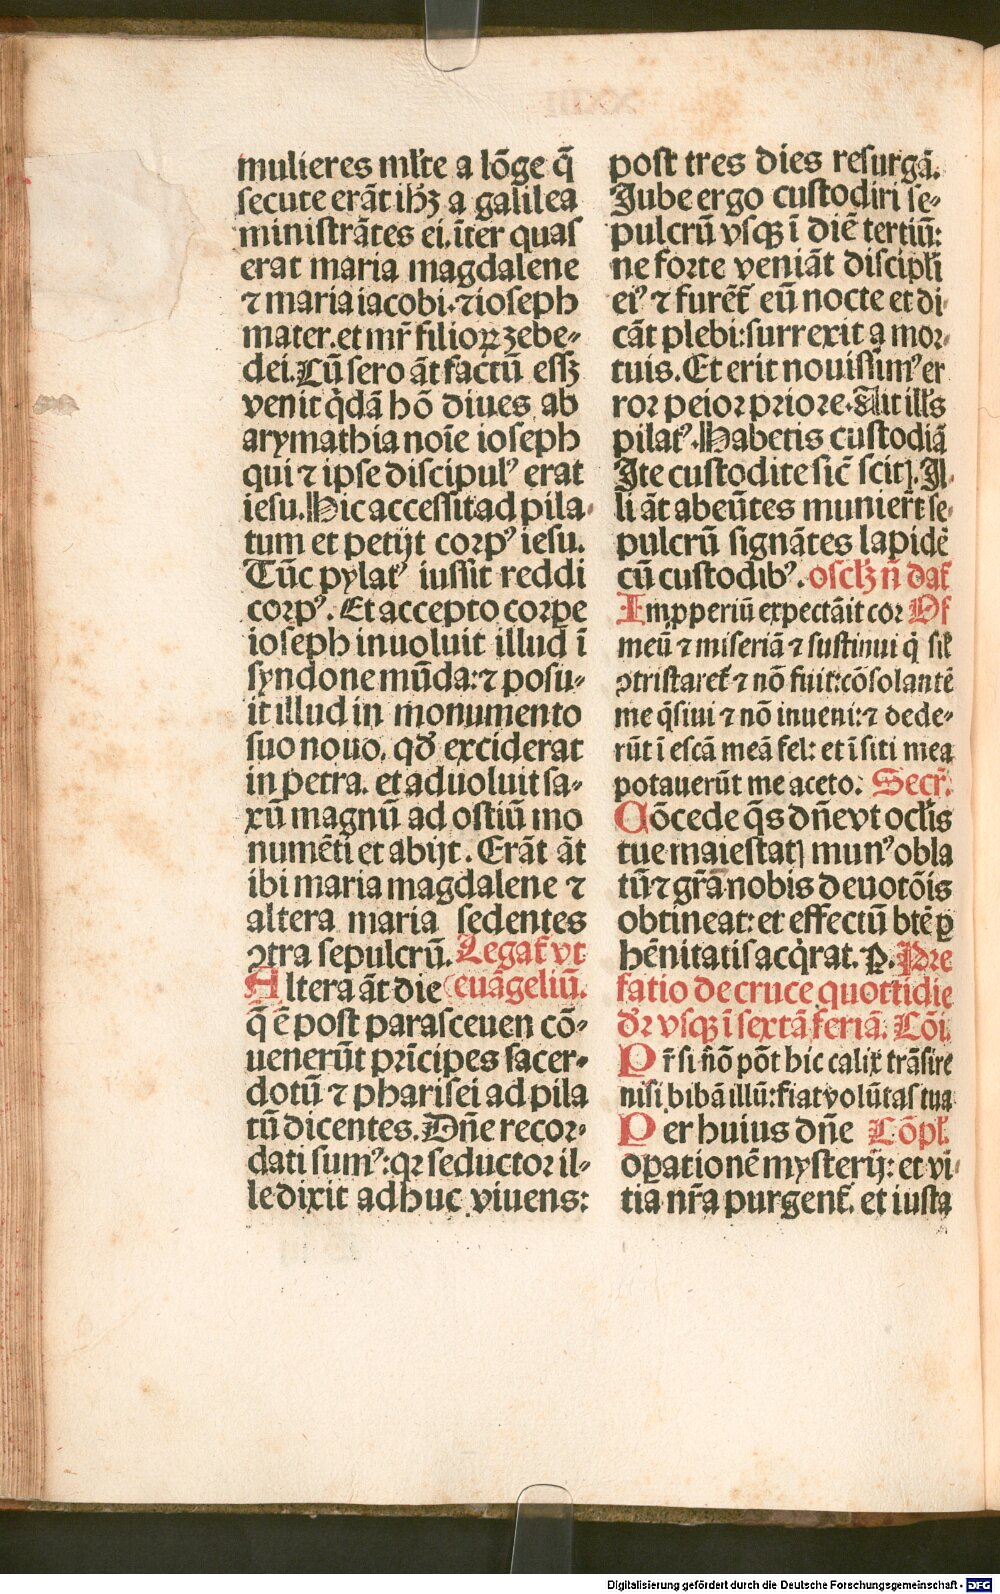 mulieres ml̃te a lõge q̃
secute erãt ihꝫ a galilea
ministrãtes ei. ĩter quas
erat maria magdalene
⁊ maria iacobi. ⁊ ioseph
mater. et mr̃ filioꝝ zebe⸗
dei. Cũ sero ãt factũ essꝫ
venit q̇dã hõ diues ab
arymathia noĩe ioseph
qui ⁊ ipse discipulꝰ erat
iesu. Hic accessit ad pila⸗
tum et petijt corpꝰ iesu.
Tũc pylatꝰ iussit reddi
corpꝰ. Et accepto corꝑe
ioseph inuoluit illud ĩ
syndone mũda: ⁊ posu⸗
it illud in monumento
suo nouo. qđ exciderat
in petra. et aduoluit sa⸗
xũ magnũ ad ostiũ mo
numẽti et abijt. Erãt ãt
ibi maria magdalene ⁊
altera maria sedentes
ꝯtra sepulcrũ. Legat̃ vt
Altera ãt die euãgeliũ.
q̃ ẽ post parasceuen cõ⸗
uenerũt prĩcipes sacer⸗
dotũ ⁊ pharisei ad pila
tũ dicentes. Dñe recor⸗
dati sumꝰ: qꝛ seductor il⸗
le dixit adhuc viuens:
post tres dies resurgã.
Jube ergo custodiri se⸗
pulcrũ vsqꝫ ĩ diẽ tertiũ:
ne forte veniãt discipl̃i
eiꝰ ⁊ furẽt̃ eũ nocte et di
cãt plebi: surrexit a mor⸗
tuis. Et erit nouissimꝰ er
ror peior priore. Ait ill̃s
pilatꝰ. Habetis custodiã
Ite custodite sic̃ scitꝭ. Il⸗
li ãt abeũtes munier̃t se⸗
pulcrũ signãtes lapidẽ
cũ custodibꝰ. osclꝫ ñ dat̃
Imꝓperiũ expectãit cor Of
meũ ⁊ miseriã ⁊ sustinui q̇ sil̃
ꝯtristaret̃ ⁊ nõ fuit: cõsolantẽ
me q̃siui ⁊ nõ inueni: ⁊ dede⸗
rũt ĩ escã meã fel: et ĩ siti mea
potauerũt me aceto. Secr̃.
Cõcede q̃s dñe vt ocl̃is
tue maiestatꝭ munꝰ obla
tũ ⁊ gr̃ã nobis deuotõis
obtineat: et effectũ btẽ ꝑ
hẽnitatis acq̇rat. P. Pre
fatio de cruce quottidie
dr̃ vsqꝫ ĩ sextã feriã. Cõi.
Pr̃ si ñõ põt hic calix trãsire
nisi bibã illũ: fiat volũtas tua
Per huius dñe Cõpl̃.
oꝑationẽ mysterij: et vi⸗
tia nr̃a purgent̃. et iusta
Digitalisierung gefördert durch die Deutsche Forschungsgemeinschaft - DFG